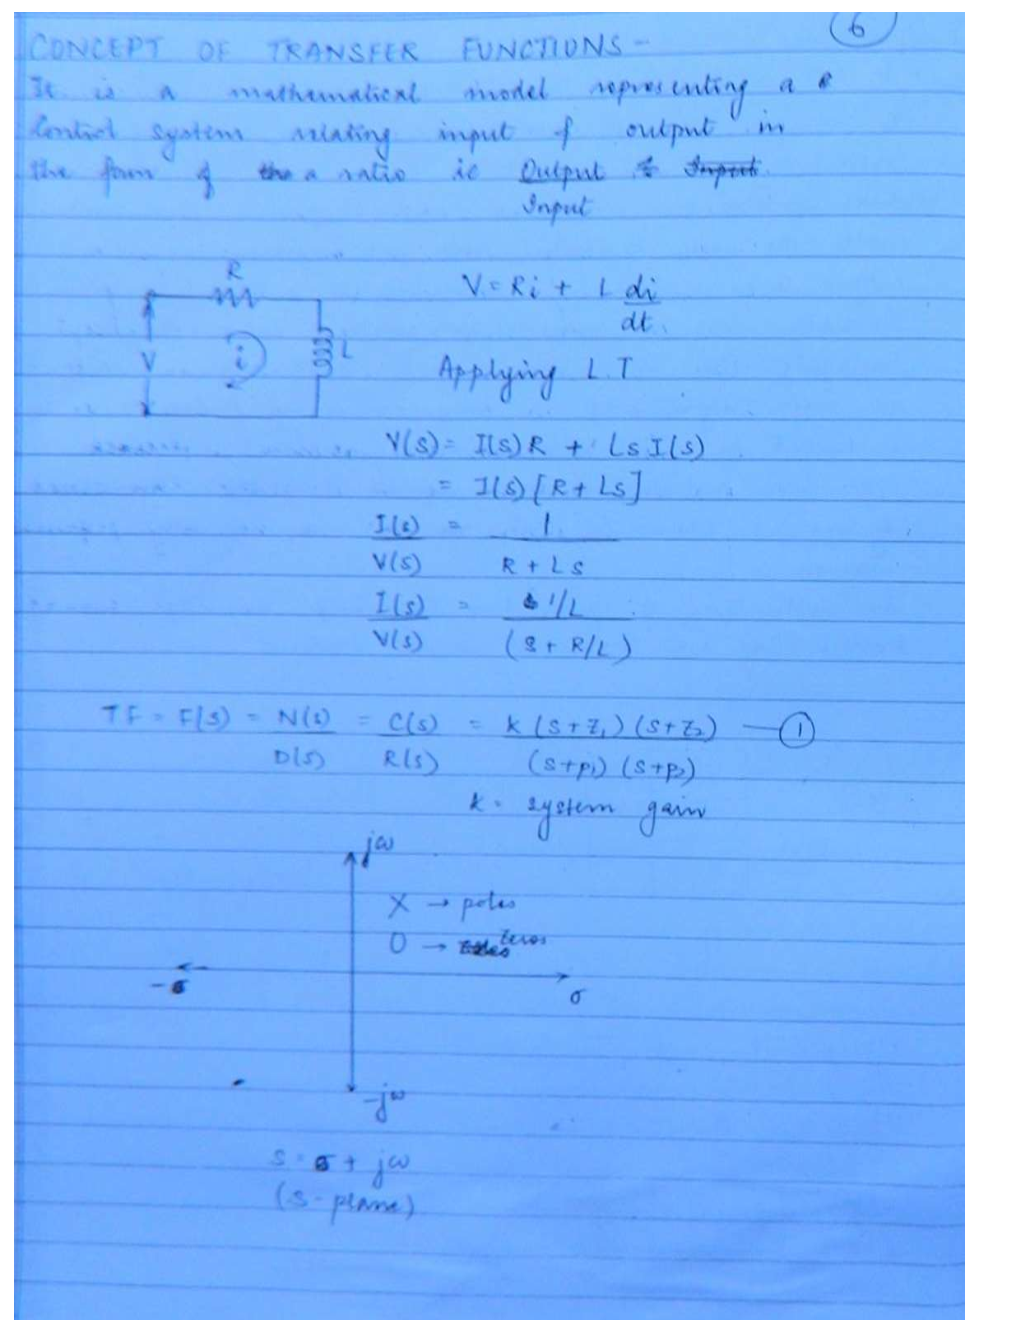 6
CONCEPT OF TRANSFER FUNCTIONS -
It is a mathematical model representing a
Control system relating input & output in
the form of a ratio ie Output
Input
R
V = Ri + L di
dt.
V i L
Applying L.T
V(s) = I(s)R + Ls I(s)
= I(s) [R + Ls]
I(s) = 1
V(s) R + Ls
I(s) = 1/L
V(s) (s + R/L)
TF = F(s) = N(s) = C(s) = k (s+z₁) (s+z₂) — 1
D(s) R(s) (s+p₁) (s+p₂)
k = system gain
jω
X → poles
O → zeros
-σ
σ
-jω
s = σ + jω
(s-plane)